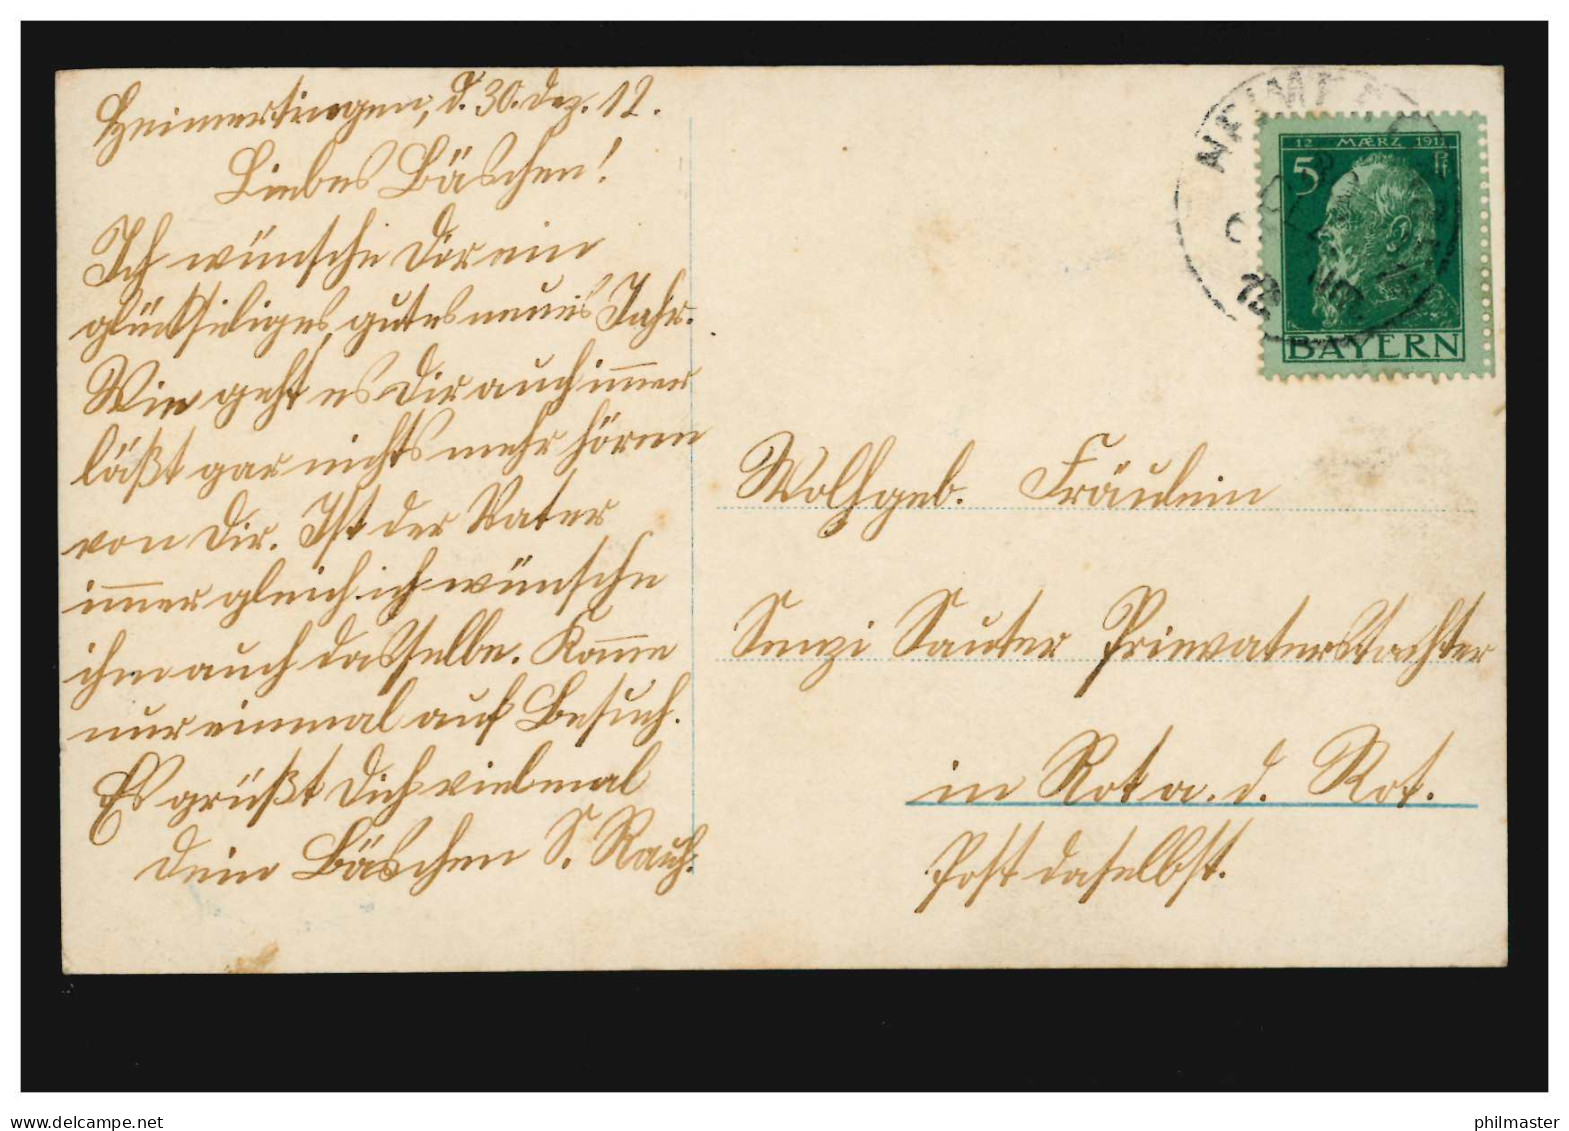 Heimertingen, d. 30. Dez. 12.
Liebes Bäschen!
Ich wünsche Dir ein
glückseliges, gutes neues Jahr.
Wie geht es Dir auch im̅er
läßt gar nichts mehr hören
von Dir. Ist der Vater
im̅er gleich ich wünsche
ihm auch dasselbe. Kom̅e
nur einmal auf Besuch.
Es grüßt Dich vielmal
Dein Bäschen S. Rauh.
12 MÆRZ 1911
5 Pf
BAYERN
Wolhgeb. Fräulein
Senzi Sauter Privatierstochter
in Rot a. d. Rot.
Post daselbst.
delcampe.net
philmaster